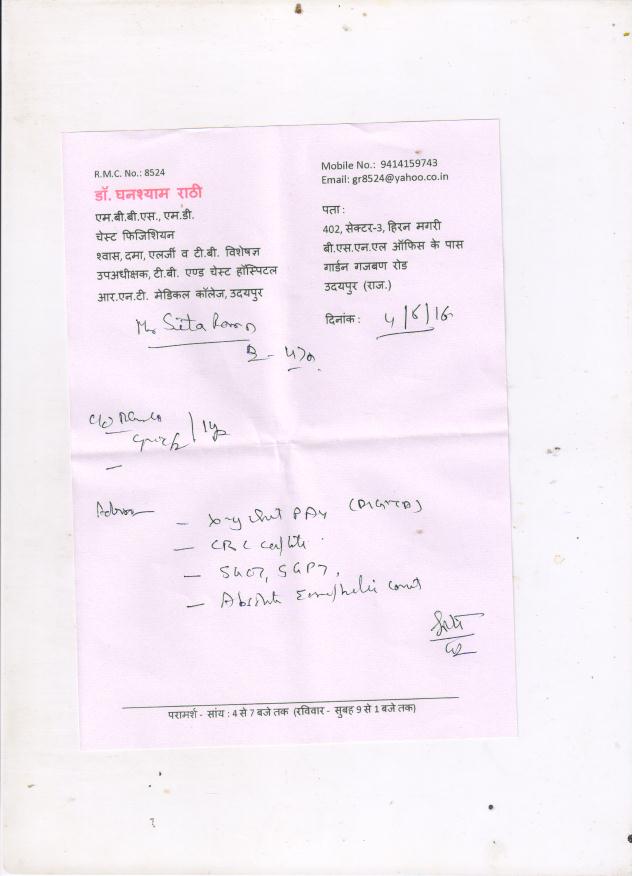 R.M.C. No.: 8524
डॉ. घनश्याम राठी
एम.बी.बी.एस., एम.डी.
चेस्ट फिजिशियन
श्वास, दमा, एलर्जी व टी.बी. विशेषज्ञ
उपअधीक्षक, टी.बी. एण्ड चेस्ट हॉस्पिटल
आर.एन.टी. मेडिकल कॉलेज, उदयपुर
Mobile No.: 9414159743
Email: gr8524@yahoo.co.in
पता :
402, सेक्टर-3, हिरन मगरी
बी.एस.एन.एल ऑफिस के पास
गार्डन गजबण रोड
उदयपुर (राज.)
दिनांक : 4/6/16
Mr Sita Ram
c/o
Advice
- X-ray chest PA (DIGITAL)
- CBC complete
- SGOT, SGPT,
- Absolute Eosinophilic count
परामर्श - सांय : 4 से 7 बजे तक (रविवार - सुबह 9 से 1 बजे तक)